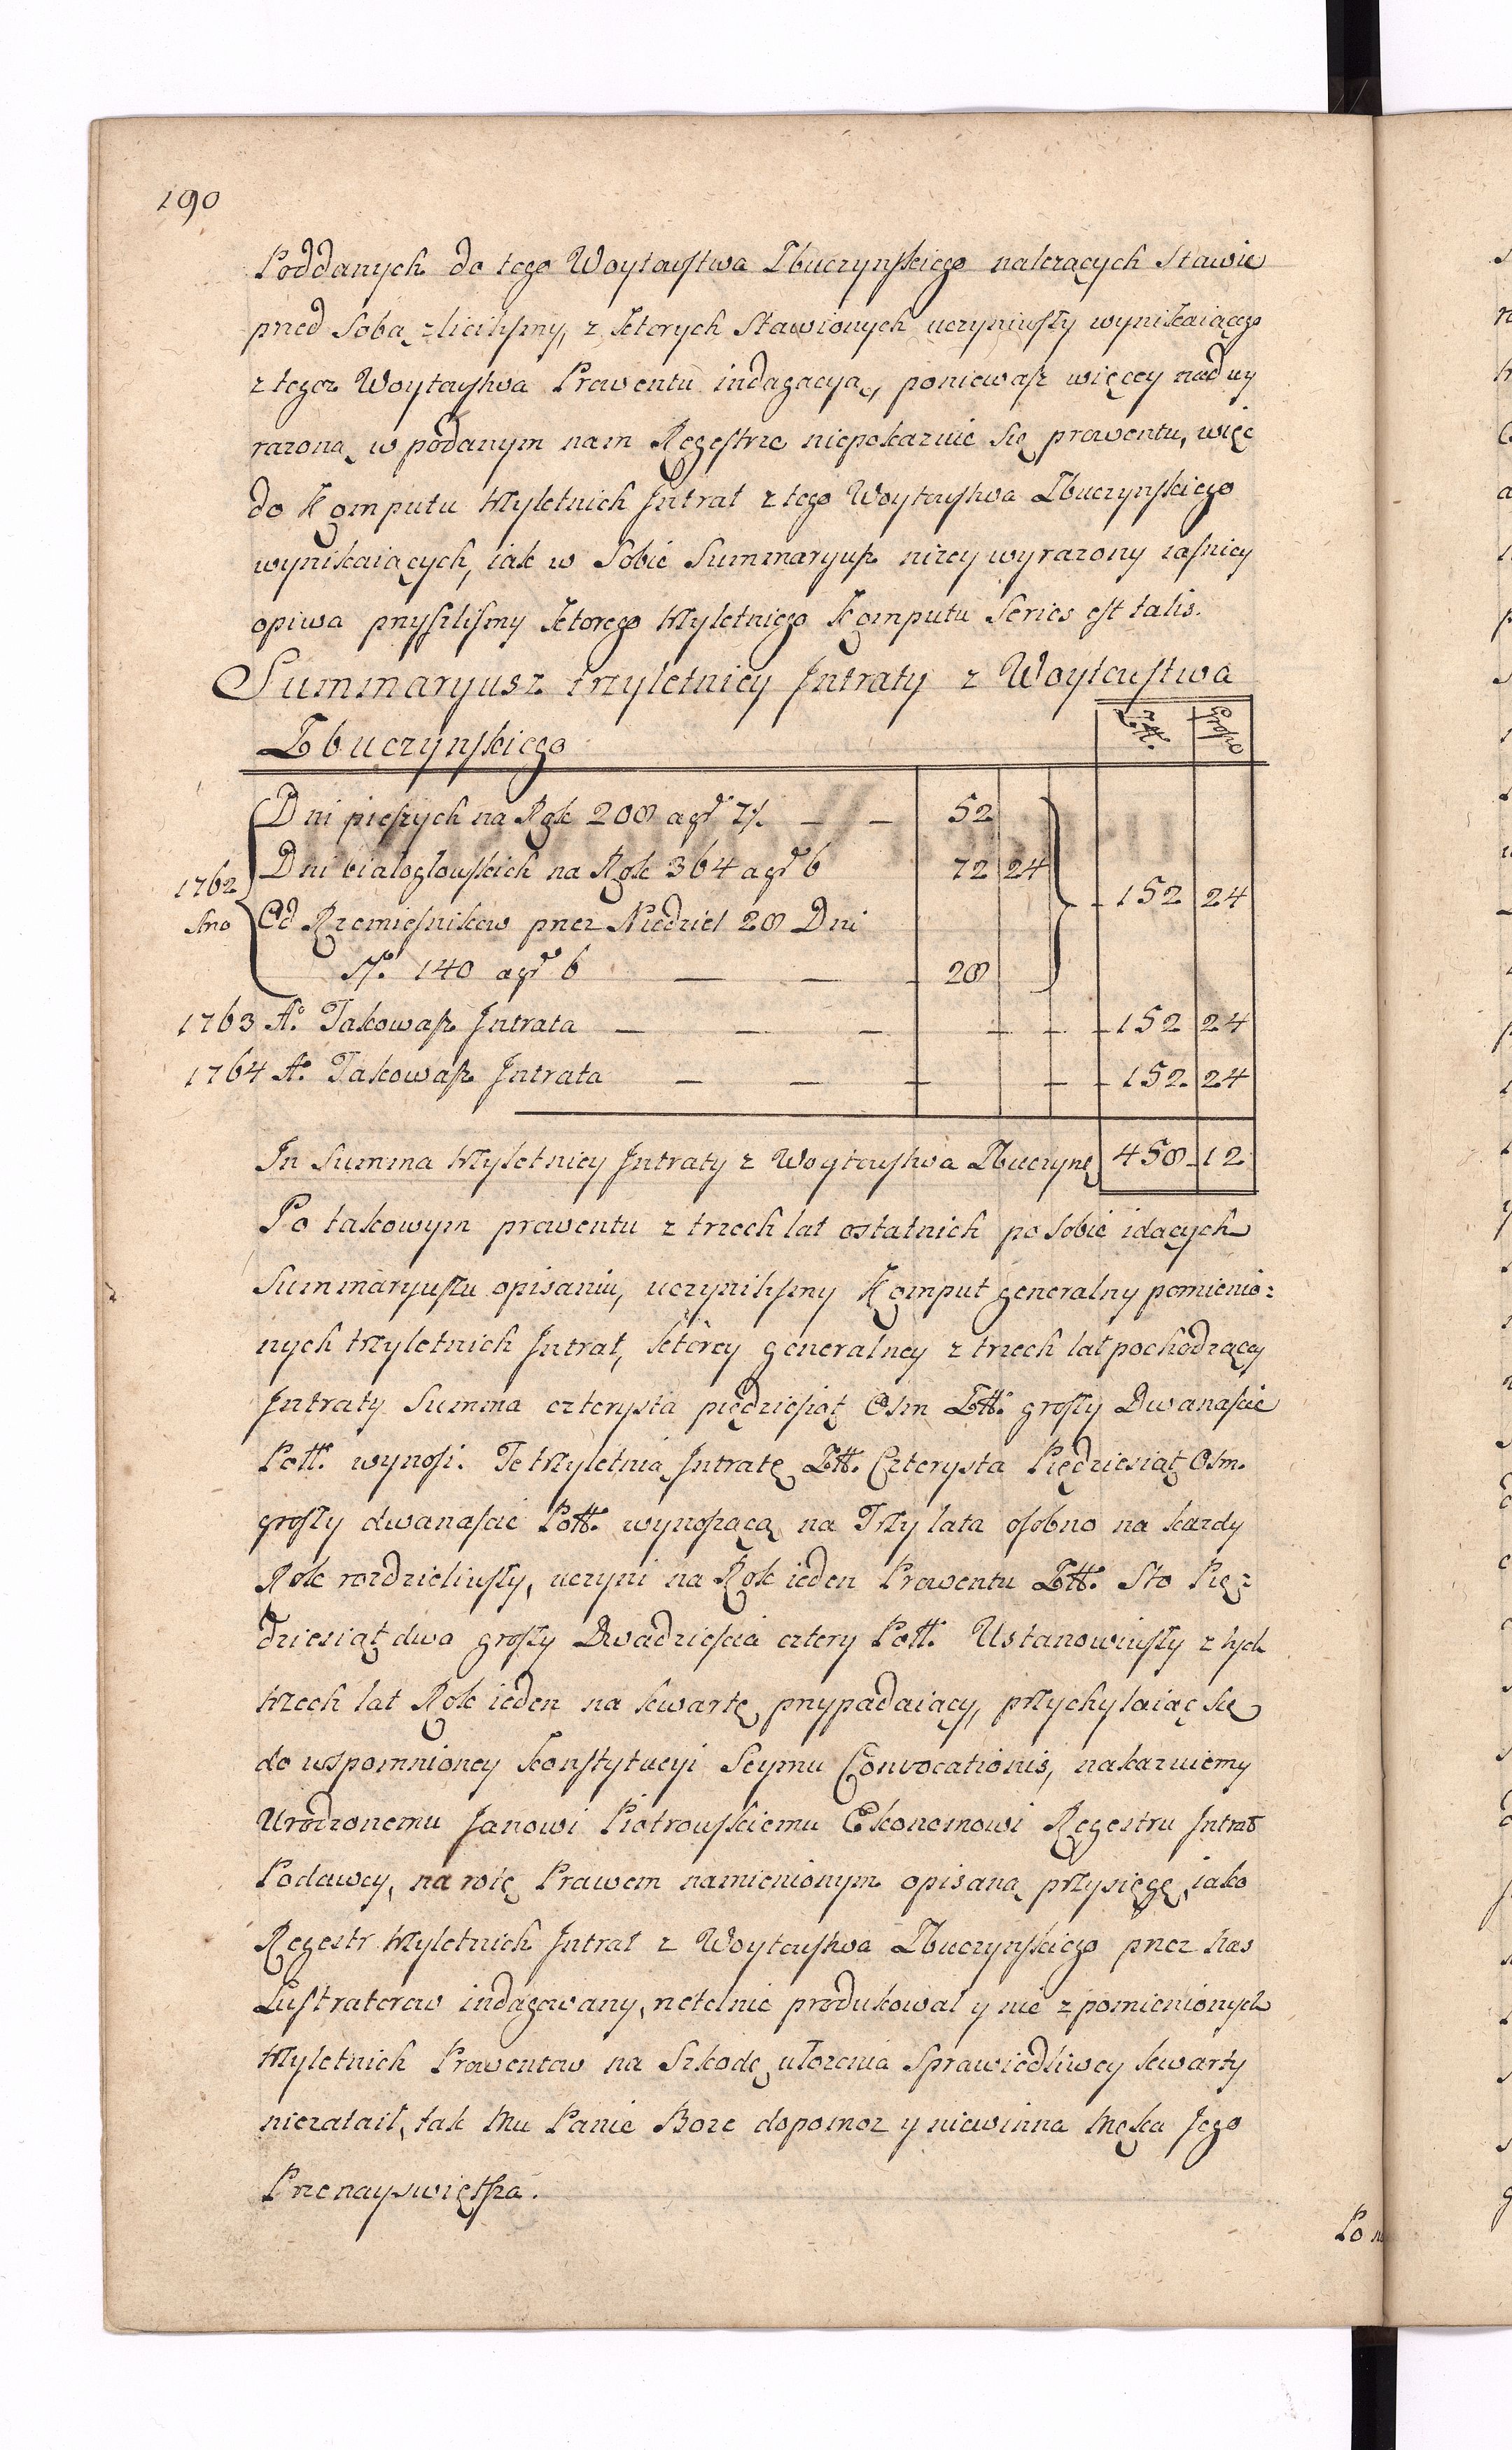 190
Poddanych do tego Woytowstwa Zbuczynskiego należących Stawić
przed Sobą zlicilismy, z ktorych Stawionych uczyniwszy wynikaiącego
z tegoz Woytowstwa Prowentu indagacyą, poniewasz więcey nad wy
rażoną w podanym nam Regestrze niepokazuie się prowentu, więc
do Komputu trzyletnich Intrat z tego Woytowstwa Zbuczynskiego
wynikaiących, iak w Sobie Summaryusz niżey wyrażony iasniey
opiwa przyszlismy ktorego trzyletniego Komputu Series est talis.
Summaryusz trzyletniey Intraty z Woytowstwa
Zbuczynskiego
Złt. Grosze
Dni pieszych na Rok 208 a gr 7½ — — 52
1762 Dni białogłowskich na Rok 364 a gr 6 72 24
Ano Od Rzemiesnikow przez Niedziel 28 Dni 152 24
No. 140 a gr 6 — — 28
1763 Ao. Takowasz Intrata — — — 152 24
1764 Ao. Takowasz Intrata — — — 152. 24
In Summa trzyletniey Intraty z Woytowstwa Zbuczynę 458 12
Po takowym prowentu z trzech lat ostatnich po sobie idących
Summaryuszu opisaniu, uczynilismy Komput generalny pomienio=
nych trzyletnich Intrat, ktorey generalney z trzech lat pochodzącey
Intraty Summa czterysta piędziesiąt Osm Złt. groszy Dwanascie
Poll. wynosi. Te trzyletnią Intratę Złt. Czterysta Piędziesiąt Osm.
groszy dwanascie Poll. wynoszącą na Trzy lata osobno na kazdy
Rok rozdzieliwszy, uczyni na Rok ieden Prowentu Złt. Sto Pię=
dziesiąt dwa groszy Dwadziescia cztery Poll. Ustanowiwszy z tych
trzech lat Rok ieden na kwartę przypadaiący, przychylaiąc się
do wspomnioney konstytucyi Seymu Convocationis, nakazuiemy
Urodzonemu Janowi Piotrowskiemu Ekonomowi Regestru Intrat
Podawcy, na rotę Prawem namienionym opisaną przysięgę, iako
Regestr trzyletnich Intrat z Woytowstwa Zbuczynskiego przez nas
Lustratorow indagowany, rzetelnie produkował y nie z pomienionych
trzyletnich Prowentow na Szkodę ułożenia Sprawiedliwey kwarty
niezataił, tak mu Panie Boze dopomoz y niewinna męka Jego
Przenayswiętsza.